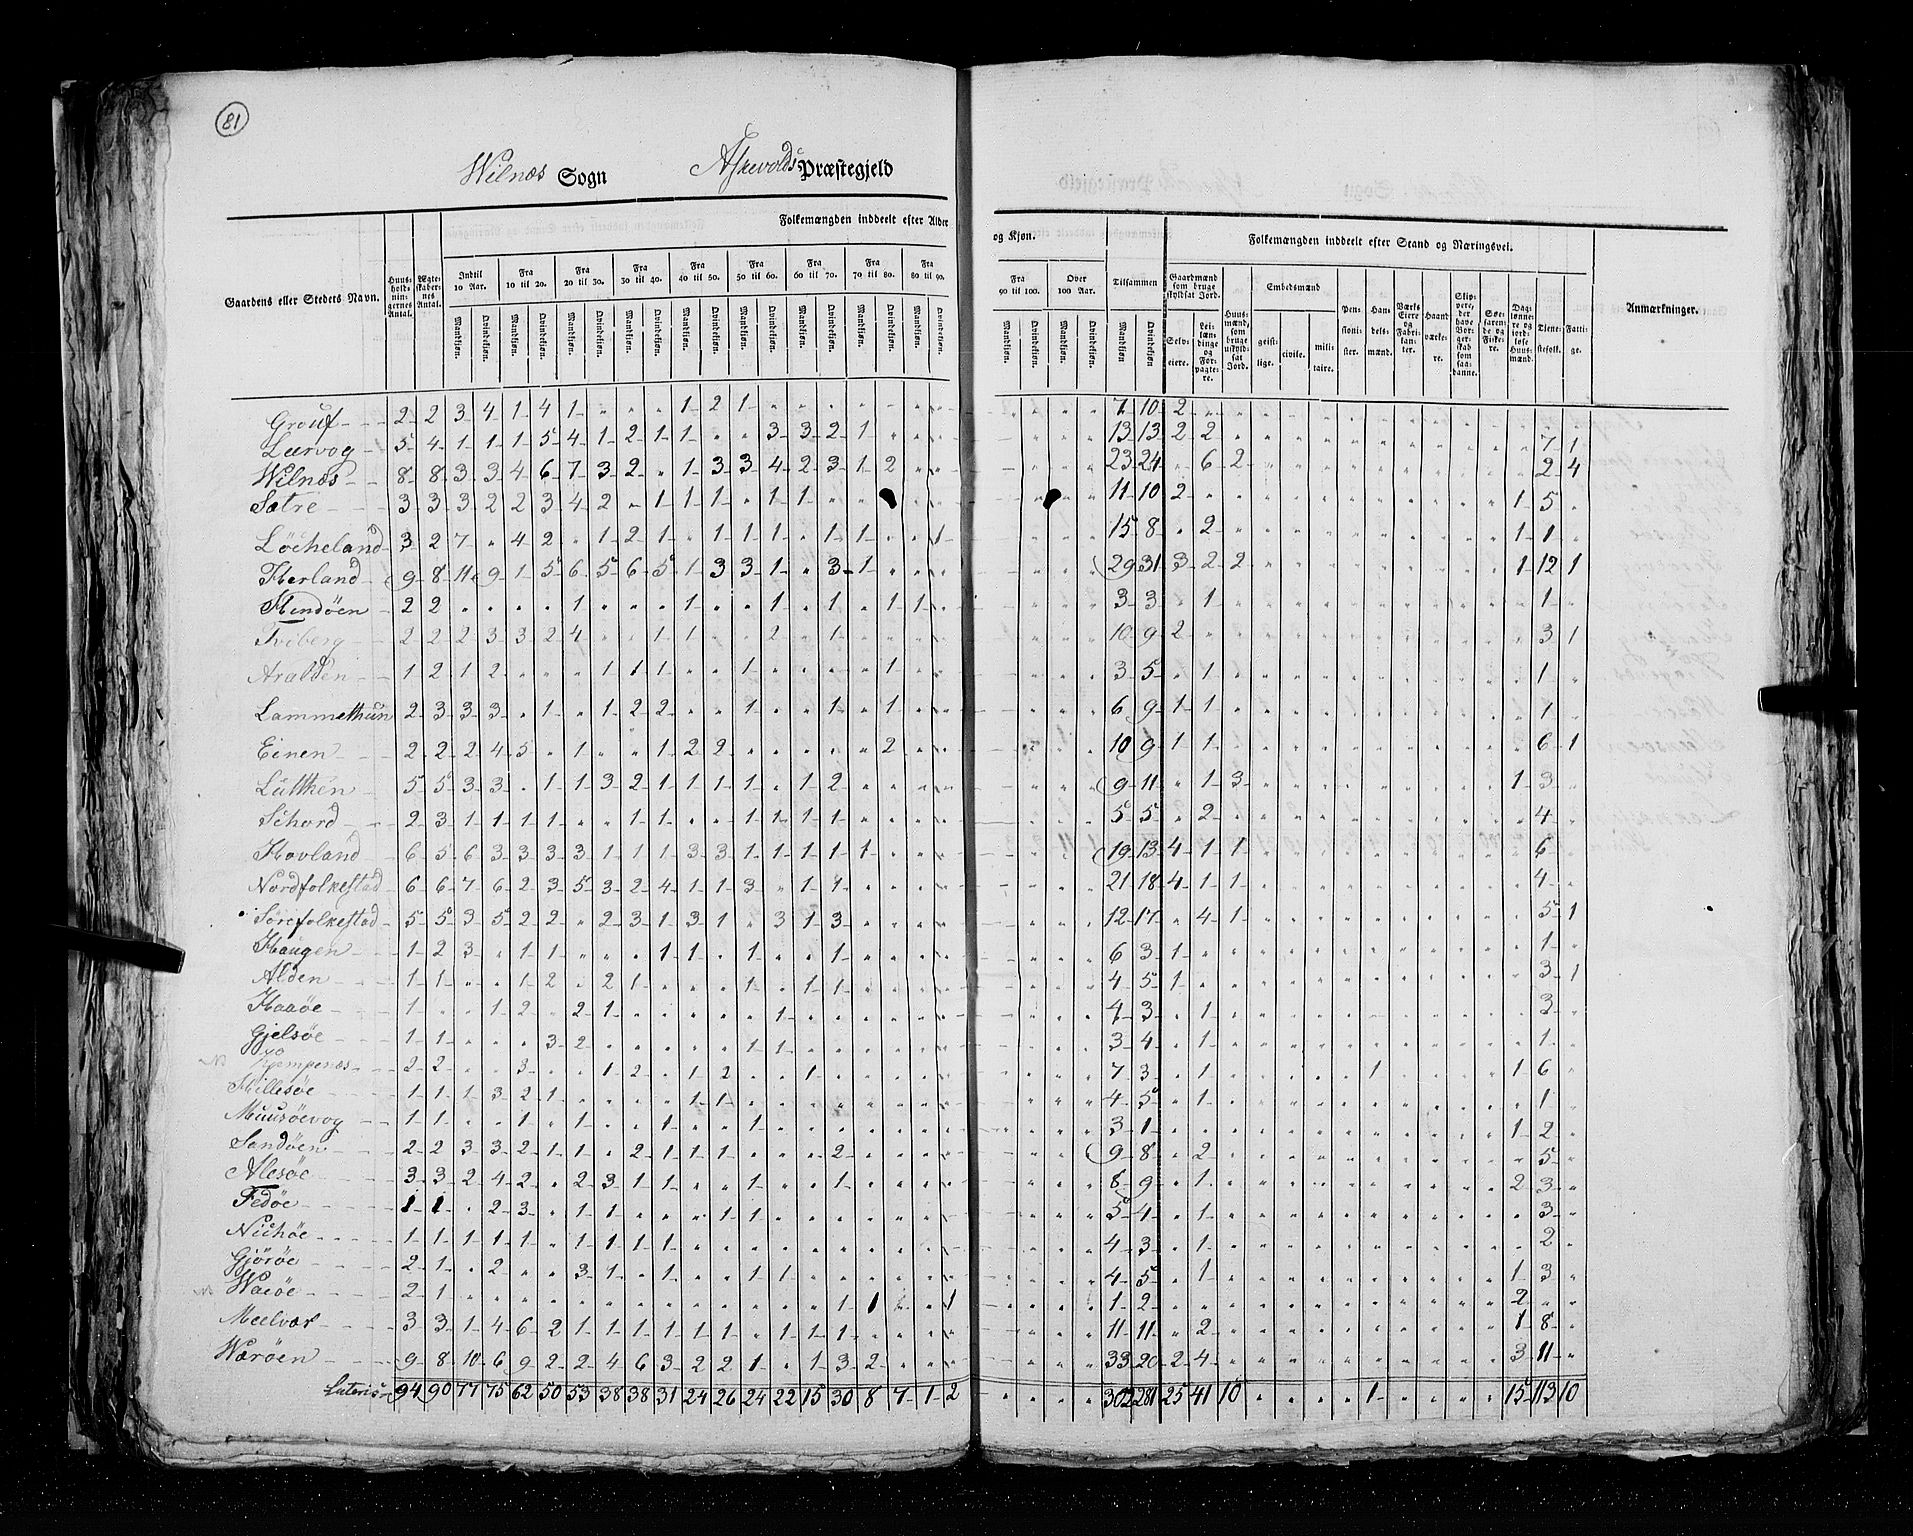 81
Wilnæs Sogn Askevolds Præstegjeld
Folkemængden inddeelt efter Alder og Kjøn. Folkemængden inddeelt efter Stand og Næringsvei.
Gaardens eller Stedets Navn. Huusholdningernes Antal. Ægteskabernes Antal. Indtil 10 Aar. Fra 10 til 20. Fra 20 til 30. Fra 30 til 40. Fra 40 til 50. Fra 50 til 60. Fra 60 til 70. Fra 70 til 80. Fra 80 til 90. Fra 90 til 100. Over 100 Aar. Tilsammen Gaardmænd som bruge skyldsat Jord. Huusmænd, som bruge uskyldsat Jord. Embedsmænd Pensionister. Handelsmænd. Værks Eiere og Fabrikanter. Haandværkere. Skippere, der have Borgerskab som saadanne. Søefarende og Fiskere. Daglønnere og jordløse Huusmænd. Tjenestefolk. Fattige. Anmærkninger.
Mandkjøn. Qvindekjøn. Mandkjøn. Qvindekjøn. Mandkjøn. Qvindekjøn. Mandkjøn. Qvindekjøn. Mandkjøn. Qvindekjøn. Mandkjøn. Qvindekjøn. Mandkjøn. Qvindekjøn. Mandkjøn. Qvindekjøn. Mandkjøn. Qvindekjøn. Mandkjøn. Qvindekjøn. Mandkjøn. Qvindekjøn. Mandkjøn Qvindekjøn. Selveiere. Leilændinge og Forpagtere. geistlige. civile. militaire.
2 2 3 4 1 4 1 " " " 1 2 1 7 10 2
Lervog 5 4 1 1 1 5 4 1 2 1 1 " " 3 3 2 1 13 13 2 2 7 1
Wilnæs 8 8 3 3 4 6 7 3 2 " 1 3 3 4 2 3 1 2 23 24 " 6 2 2 4
Sætre 3 3 3 2 2 3 4 2 " 1 1 1 " 1 1 11 10 2 1 5
Løcheland 3 2 7 " 4 2 " 1 2 1 " 1 1 1 " 1 1 " " 1 15 8 " 2 1 1
Herland 9 8 11 9 1 5 6 5 6 5 1 3 3 1 " 3 1 29 31 3 2 2 1 12 1
2 2 " " " " 1 " " " 1 " " 1 " 1 " 1 1 3 3 " 1 1
Tviberg 2 2 2 3 3 2 4 " " 1 1 " " 2 " 1 10 9 2 3 1
Aralden 1 2 1 2 " " " 1 1 1 " " 1 " " " " 1 3 5 " 1 1
Lammethun 2 3 3 3 " 1 " 1 2 2 " " 1 " " 1 " 1 6 9 1 1 1
Einen 2 2 2 4 5 " 1 " " 1 2 2 " " " " " 2 10 9 1 1 6 1
Lütthen 5 5 3 3 " 1 1 3 2 1 1 1 1 " 1 2 9 11 " 1 3 1 3
Schord 2 3 1 1 1 1 " " 1 1 " " 1 1 1 1 5 5 " 2 4
Hovland 6 5 6 3 3 3 3 1 1 1 3 3 1 1 1 1 1 19 13 4 1 1 6
Nordfolkestad 6 6 7 6 2 3 5 3 2 4 1 1 3 " 1 1 21 18 4 1 1 4
Sørefolkestad 5 5 3 5 2 2 " 2 3 1 3 1 " 3 1 3 12 17 " 4 1 5 1
Haugen 1 2 3 " 1 1 " " " 1 1 " 1 " " 1 6 3 1 1
Alden 1 1 " " 1 2 " 2 1 " " " 1 " 1 1 4 5 1 3 1
Haaøe 1 " " 1 2 " 2 1 " " " " " 1 4 3 " 1 3
Gjelsøe 1 1 " " " 3 2 " " " " " 1 1 3 4 " 1 1
2 2 " " 3 " " 1 2 " 1 2 " " 1 7 3 " 1 1 1 6
Hillesøe 1 1 1 3 2 1 " " " " 1 1 4 5 " 1 1
Muusøevog 1 1 " " 1 " 1 " " 1 " " 1 3 1 1 2
Sandøen 2 2 3 3 2 1 1 " 2 1 1 1 " " " 2 9 8 " 2 5
Alesøe 3 3 2 4 2 " 2 3 1 1 " " 1 " " 1 8 9 " 1 2 3
Fedøe 1 1 " 2 3 " 1 1 " " " 1 1 5 4 " 1 3
Nichøe 1 1 1 1 1 " 1 1 1 1 4 3 " 1 2
Gjørøe 2 1 " 2 " " 3 1 " 1 " " 1 1 4 5 " 1 1 3
Waeøe 2 1 " " " " " " " " " " " " " 1 1 " " 1 1 2 2
Meelvær 3 3 1 4 6 2 1 1 1 1 1 1 " 1 1 1 11 11 " 2 1 8
Wærøen 9 8 10 6 9 2 2 4 6 3 2 2 1 " 1 3 2 33 20 2 4 3 11
Lateris 94 90 77 75 62 50 53 38 38 31 24 26 24 22 15 30 8 7 1 2 302 281 25 41 10 1 15 113 10